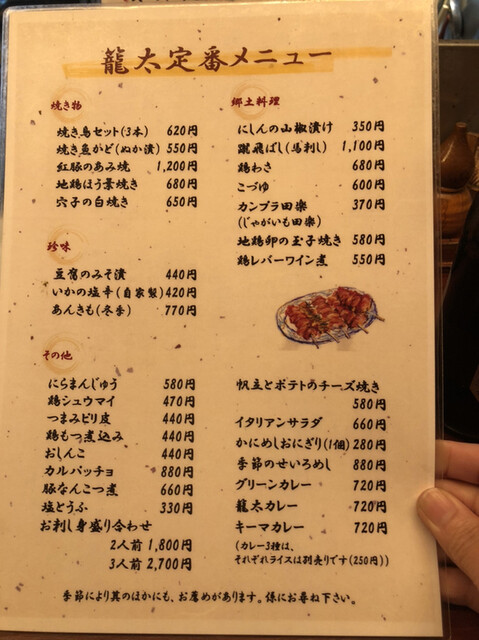 龍太定番メニュー
焼き物
焼き鳥セット(3本) 620円
焼き魚かど(ぬか漬) 550円
紅豚のあみ焼 1,200円
地鶏ほう葉焼き 680円
穴子の白焼き 650円
珍味
豆富のみそ漬 440円
いかの塩辛(自家製) 420円
あんきも(冬季) 770円
その他
にらまんじゅう 580円
鶏シュウマイ 470円
つまみピリ皮 440円
鶏もつ煮込み 440円
おしんこ 440円
カルパッチョ 880円
豚なんこつ煮 660円
塩とうふ 330円
お刺し身盛り合わせ
2人前 1,800円
3人前 2,700円
郷土料理
にしんの山椒漬け 350円
蹴飛ばし(馬刺し) 1,100円
鶏わさ 680円
こづゆ 600円
カンプラ田楽 370円
(じゃがいも田楽)
地鶏卵の玉子焼き 580円
鶏レバーワイン煮 550円
帆立とポテトのチーズ焼き
580円
イタリアンサラダ 660円
かにめしおにぎり(1個) 280円
季節のせいろめし 880円
グリーンカレー 720円
龍太カレー 720円
キーマカレー 720円
(カレー3種は、
それぞれライスは別売りです(250円))
季節により其のほかにも、お薦めがあります。係にお尋ね下さい。